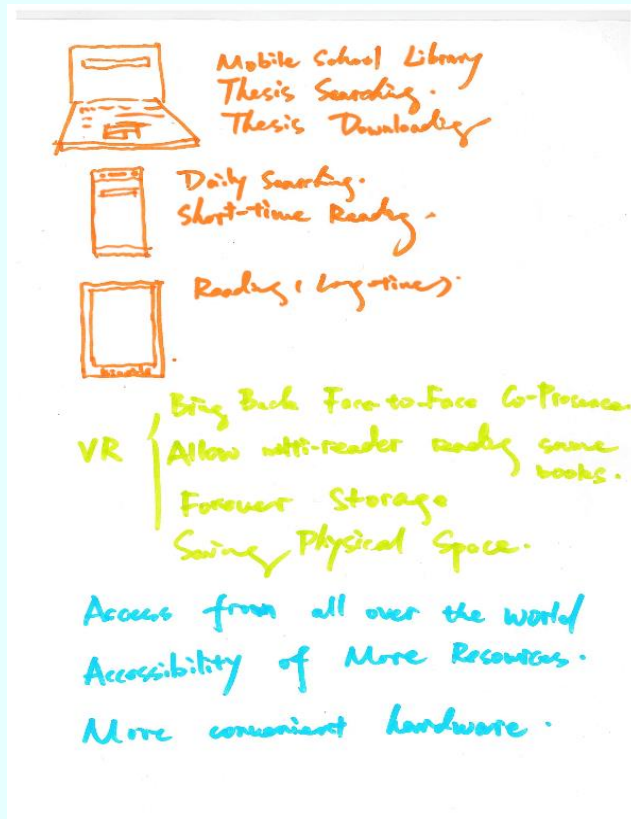 Mobile School Library
Thesis Searching.
Thesis Downloading
Daily Searching.
Short-time Reading.
Reading (Long-time).
Bring Back Face-to-Face Co-Presence
VR
Allow multi-reader reading same
books.
Forever Storage
Saving Physical Space.
Access from all over the world
Accessibility of More Resources.
More convenient hardware.